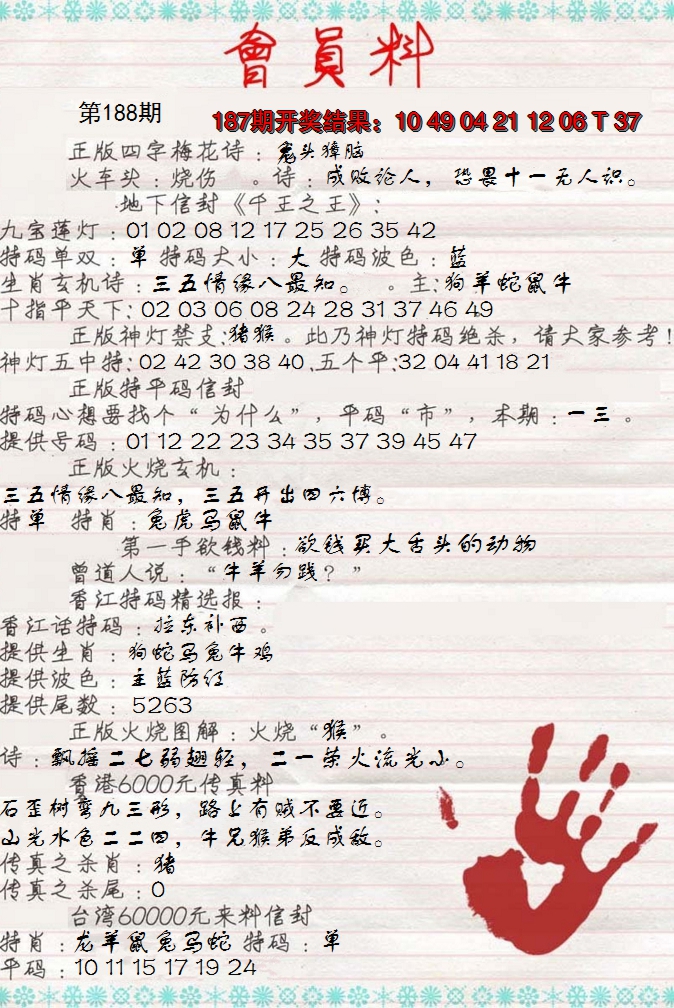 會員料
第188期
187期开奖结果：10 49 04 21 12 06 T 37
正版四字梅花诗：鬼头獐脑
火车头：烧伤 。诗：成败论人，恐畏十一无人识。
地下信封《千王之王》：
九宝莲灯：01 02 08 12 17 25 26 35 42
特码单双：单 特码大小：大 特码波色：蓝
生肖玄机诗：三五情缘八最知。 。主：狗羊蛇鼠牛
十指平天下：02 03 06 08 24 28 31 37 46 49
正版神灯禁支：猪猴。此乃神灯特码绝杀，请大家参考！
神灯五中特：02 42 30 38 40.五个平：32 04 41 18 21
正版特平码信封
特码心想要找个“为什么”，平码“市”，本期：一三。
提供号码：01 12 22 23 34 35 37 39 45 47
正版火烧玄机：
三五情缘八最知，三五开出四六博。
特单 特肖：兔虎马鼠牛
第一手欲钱料：欲钱买大舌头的动物
曾道人说：“牛羊勿践？”
香江特码精选报：
香江话特码：拉东补西。
提供生肖：狗蛇马兔牛鸡
提供波色：主蓝防红
提供尾数：5263
正版火烧图解：火烧“猴”。
诗：飘摇二七弱翅轻，二一荣火流光小。
香港6000元传真料
石歪树弯九三形，路上有贼不要近。
山光水色二二四，牛兄猴弟反成敌。
传真之杀肖：猪
传真之杀尾：0
台湾60000元来料信封
特肖：龙羊鼠兔马蛇 特码：单
平码：10 11 15 17 19 24